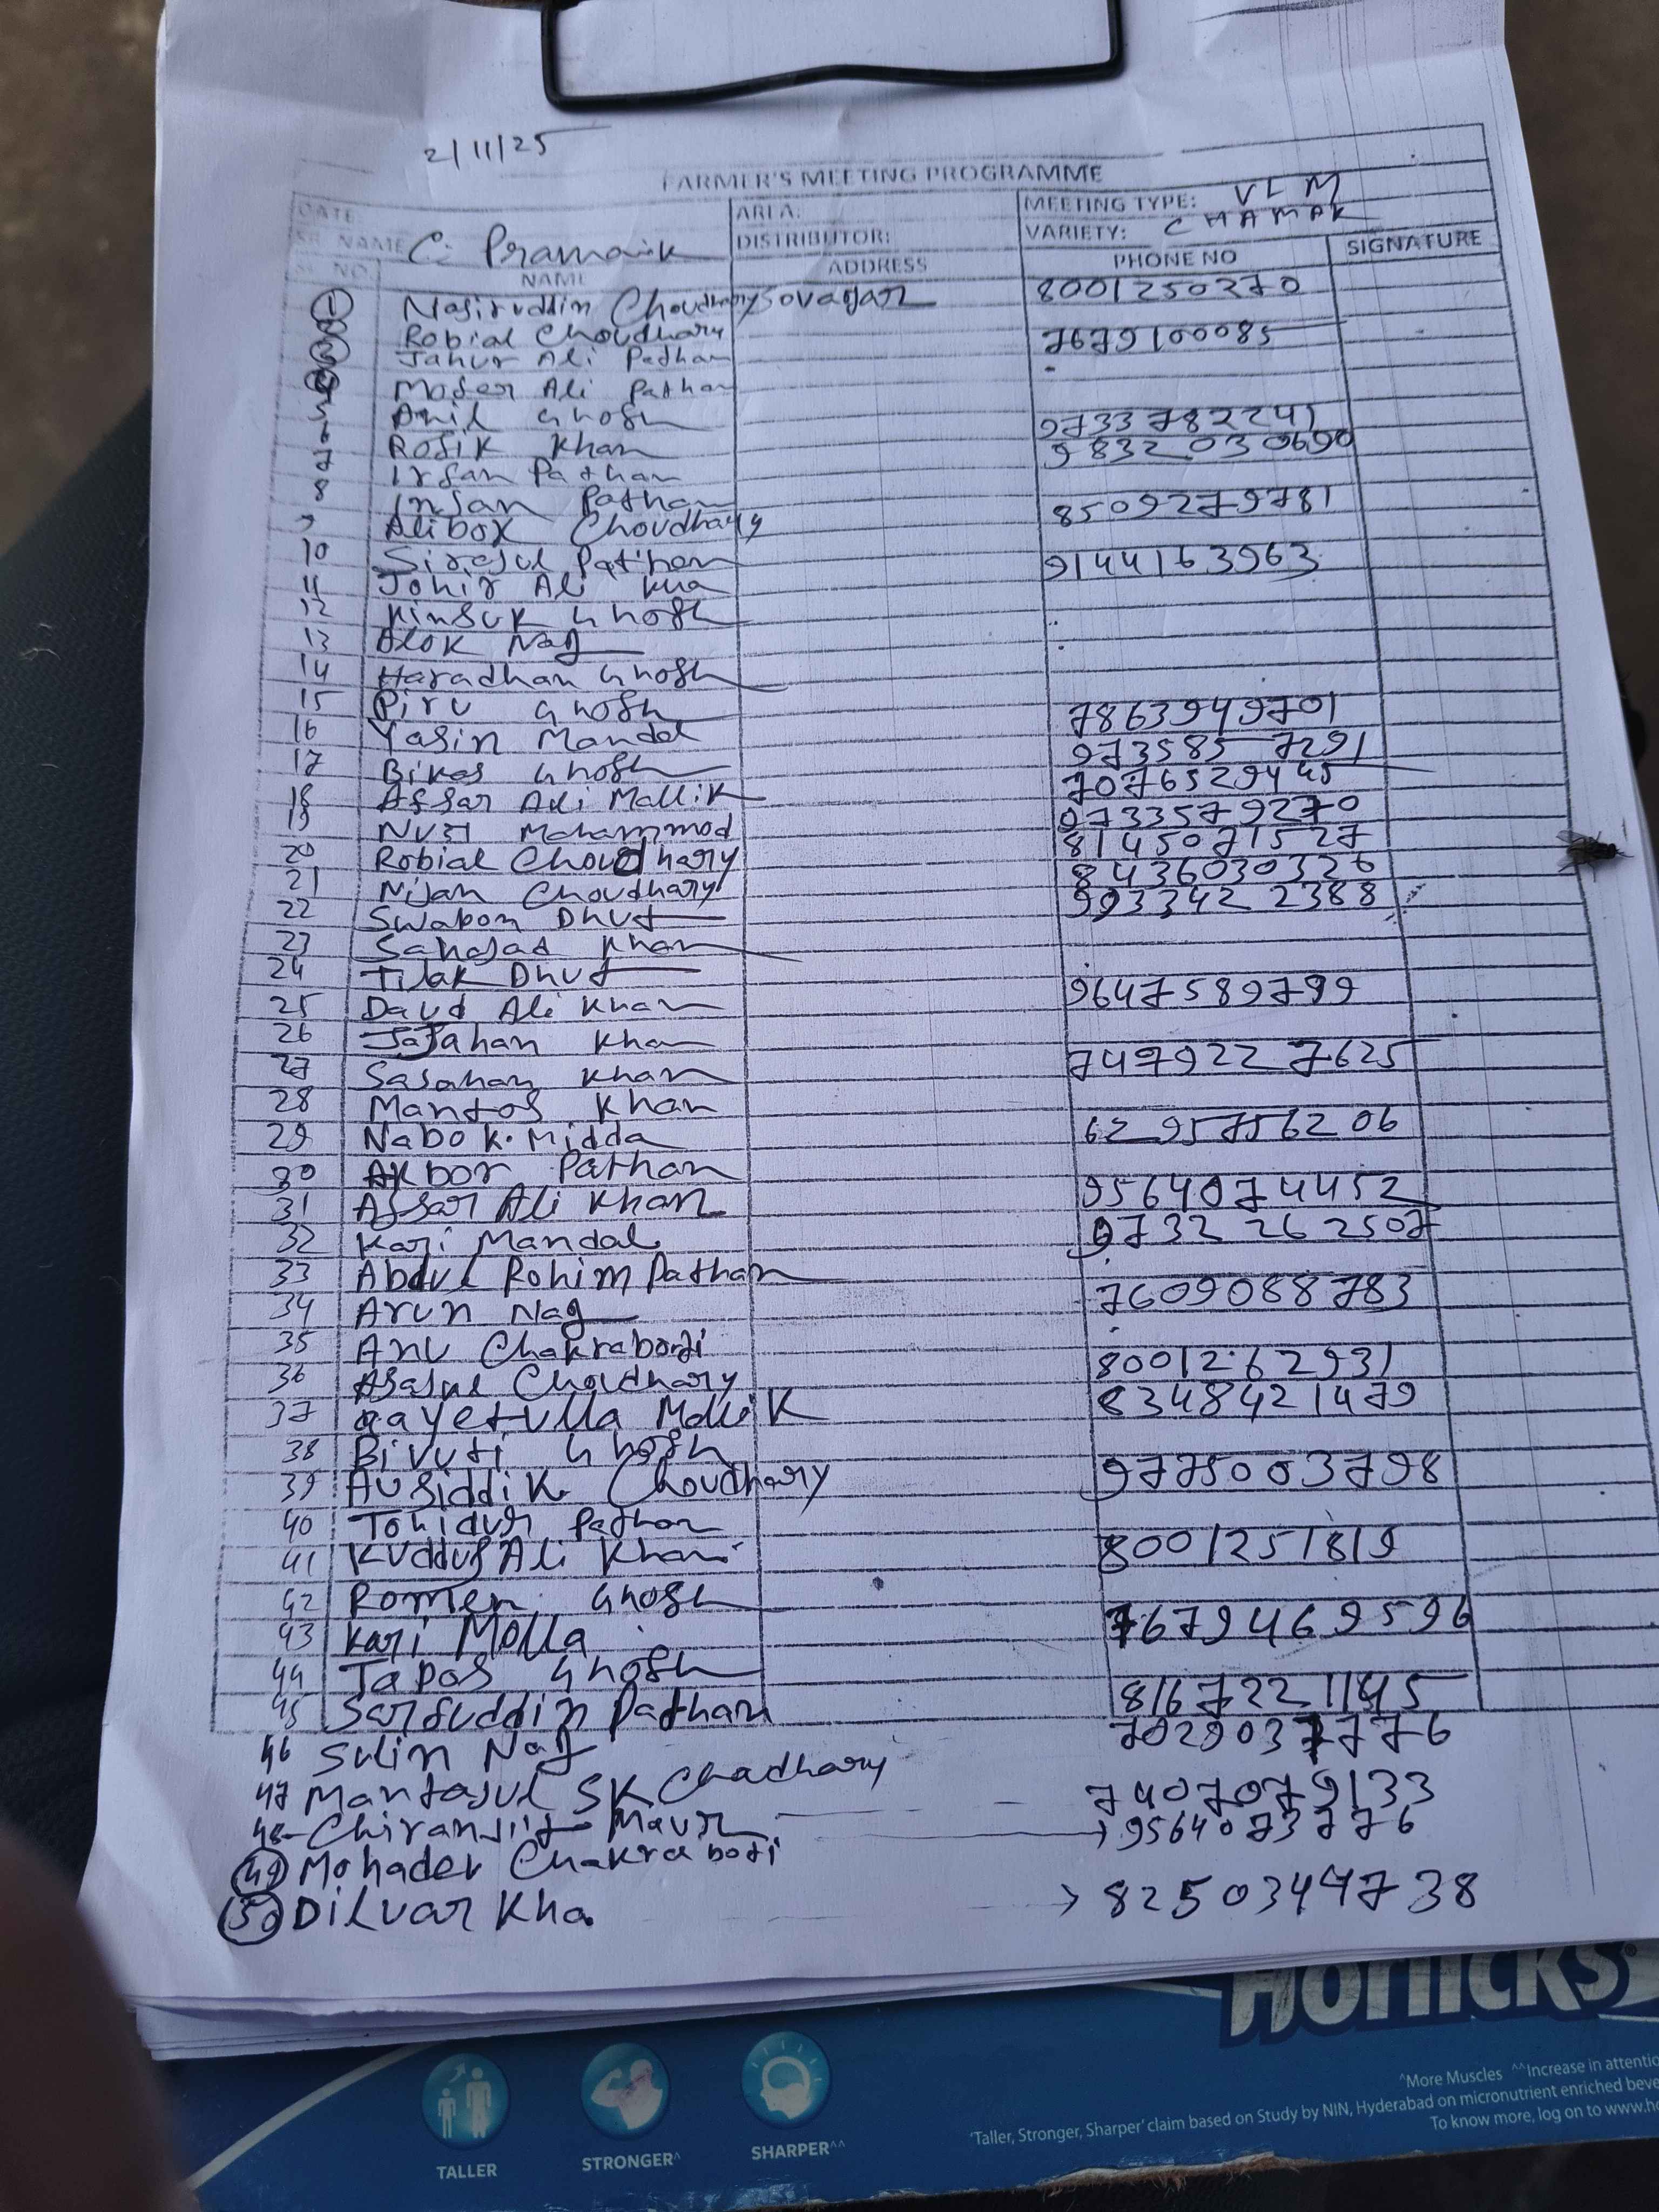 2/11/25
FARMER'S MEETING PROGRAMME
DATE: AREA: MEETING TYPE: VLM
SR. NAME C. Pramanik DISTRIBUTOR: VARIETY: CHAMAK
SL. NO. NAME ADDRESS PHONE NO SIGNATURE
1 Nasiruddin Choudhary Sovagar 8001250270
2 Robial Choudhary 7679100085
3 Jahur Ali Pathan
4 Moser Ali Pathan
5 Anil Ghosh 9733782241
6 Rosik Khan 98320306
7 Irfan Pathan
8 Insan Pathan 8509279781
9 Alibox Choudhary
10 Sirajul Pathan 9144163963
11 Johir Ali Kha
12 Kinsuk Ghosh
13 Alok Nag
14 Haradhan Ghosh
15 Piru Ghosh 7863949701
16 Yasin Mandal 973585 7291
17 Bikas Ghosh 7076529445
18 Afsar Ali Mallik 9733579270
19 Nurl Mohammod 8145071527
20 Robial Choudhary 8436030326
21 Nijan Choudhary 993342 2388
22 Swapon Dhut
23 Sahajad Khan
24 Tilak Dhut 9647589799
25 Daud Ali Khan
26 Jajahan Khan 747922 7625
27 Sasahan Khan
28 Mantos Khan 6295756206
29 Nabo K. Midda
30 Akbor Pathan 9564074452
31 Afsar Ali Khan 9732 26 2507
32 Kaji Mandal
33 Abdul Rohim Pathan 7609088783
34 Arun Nag
35 Anu Chakraborti 8001262931
36 Asajul Choudhary 8348421479
37 Gayetulla Mallik
38 Bivuti Ghosh 9775003798
39 Au Siddik Choudhary
40 Tohidur Pathan 8001251819
41 Kuddus Ali Khan
42 Romen Ghosh 7679469596
43 Kaji Molla
44 Tapos Ghosh 8167221145
45 Sarfuddin Pathan 7029037776
46 Sulin Nag
47 Mantajul SK Chadhary 7407079133
48 Chiranjit Maur 9564073776
49 Mohader Chakraborti
50 Dilvar Kha 8250344738
Horlicks
TALLER STRONGER^ SHARPER^^
^More Muscles ^^Increase in attentio
'Taller, Stronger, Sharper' claim based on Study by NIN, Hyderabad on micronutrient enriched beve
To know more, log on to www.ho